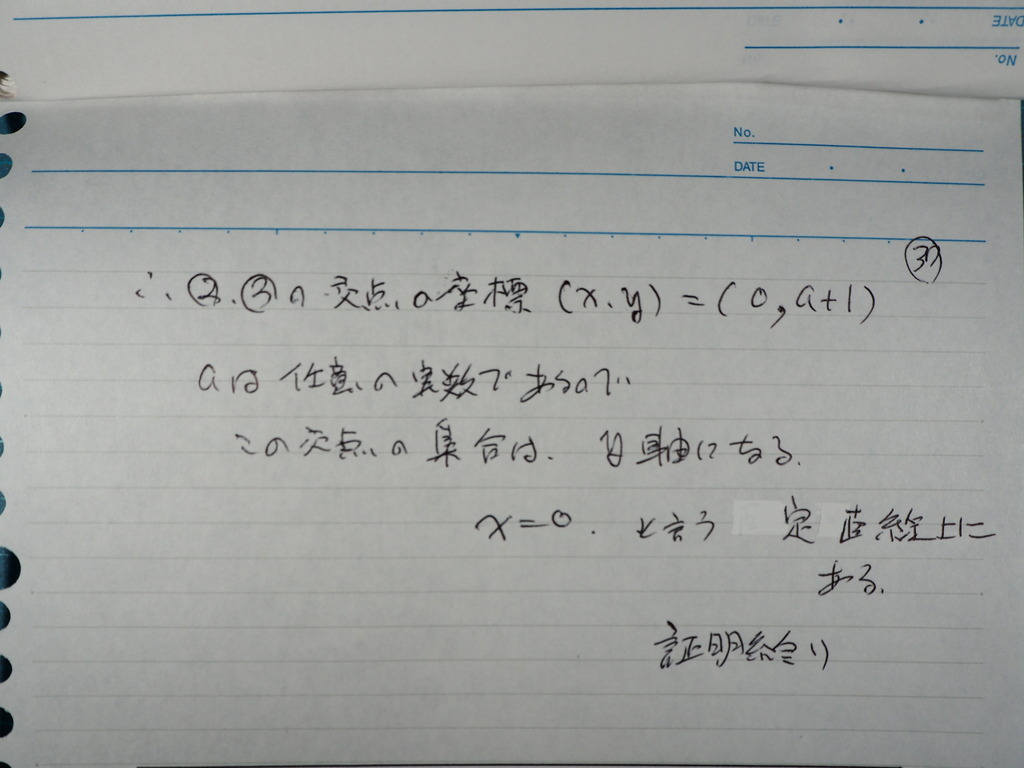 DATE
No.
No.
DATE
∴ ②、③の交点の座標 (x、y) = (0, a+1)
aは任意の実数であるので
この交点の集合は、y軸になる。
x=0. と言う 定直線上に
ある。
証明終り